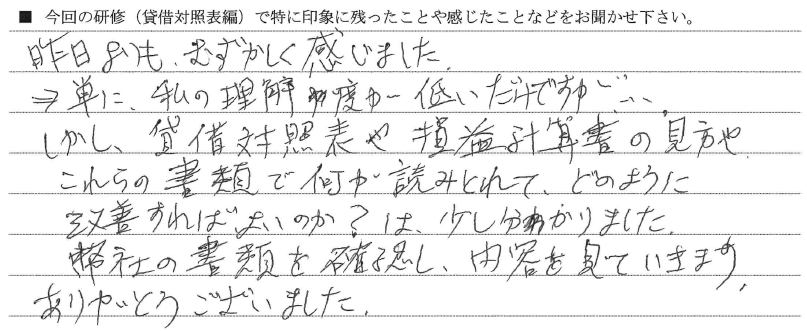 ■ 今回の研修（貸借対照表編）で特に印象に残ったことや感じたことなどをお聞かせ下さい。
昨日よりも、むずかしく感じました。
⇒単に、私の理解度が低いだけですが…。
しかし、貸借対照表や損益計算書の見方や、
これらの書類で何が読みとれて、どのように
改善すればよいのか？は、少し分かりました。
弊社の書類を確認し、内容を見ていきます。
ありがとうございました。